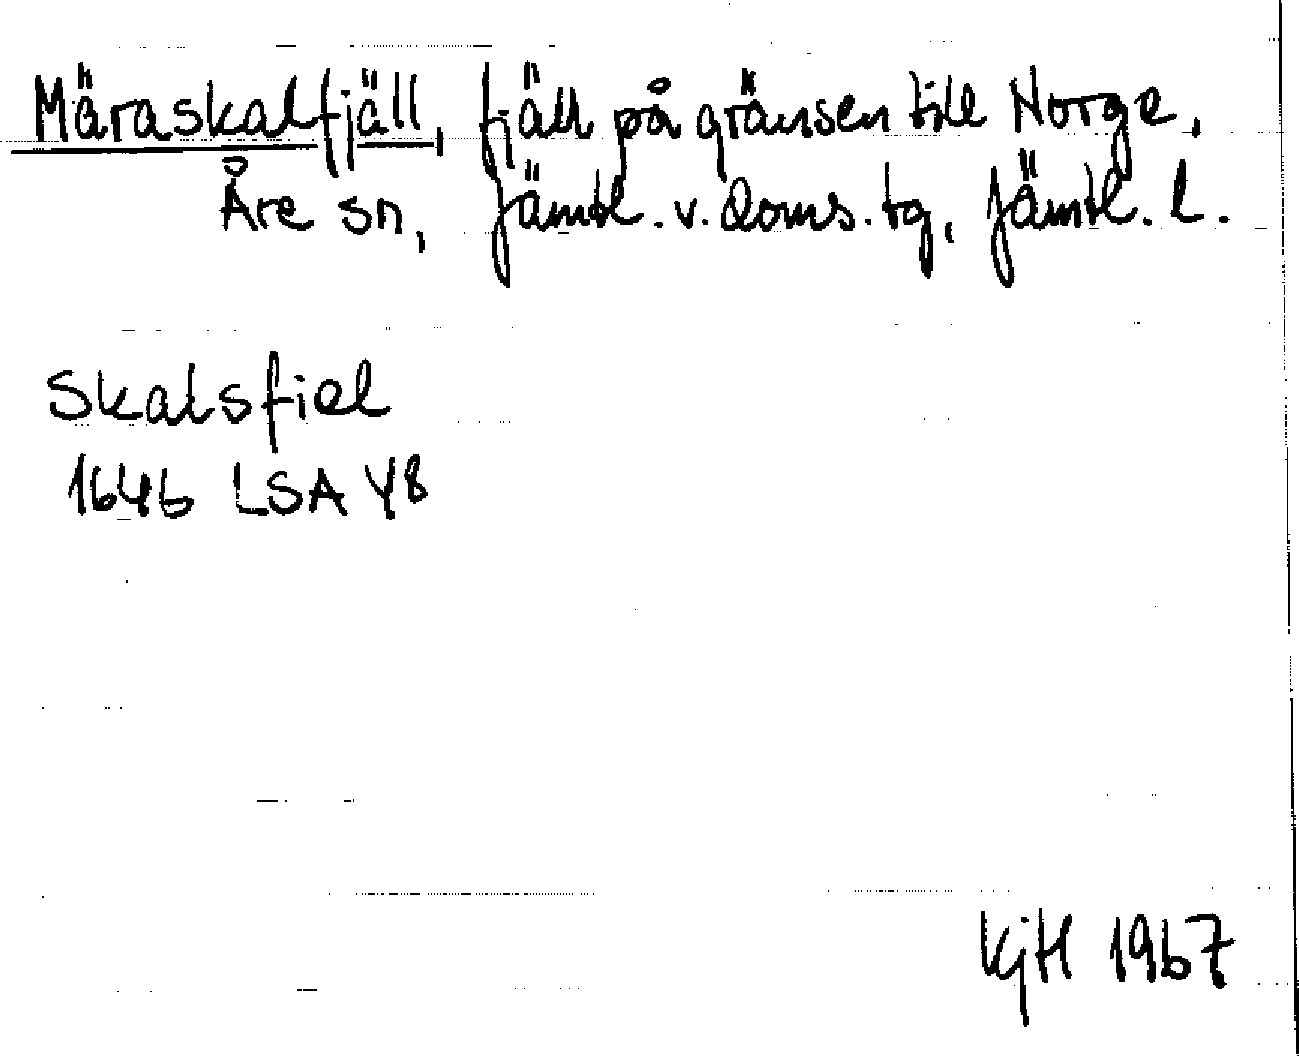 Märaskalfjäll, fjäll på gränsen till Norge,
Åre sn, Jämtl. v. doms. tg, Jämtl. l.
Skalsfiel
1646 LSA Y8
KjH 1967